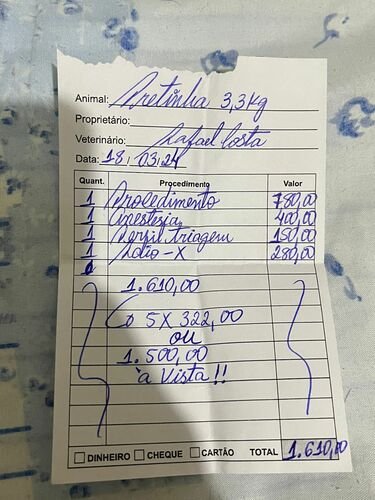 Animal: Pretinha 3,3Kg
Proprietário:
Veterinário: Rafael Costa
Data: 18/03/24
Quant. Procedimento Valor
1 Procedimento 780,00
1 Anestesia 400,00
1 Perfil triagem 150,00
1 Radio-X 280,00
1.610,00
5X 322,00
ou
1.500,00
à Vista!!
DINHEIRO CHEQUE CARTÃO TOTAL 1.610,00